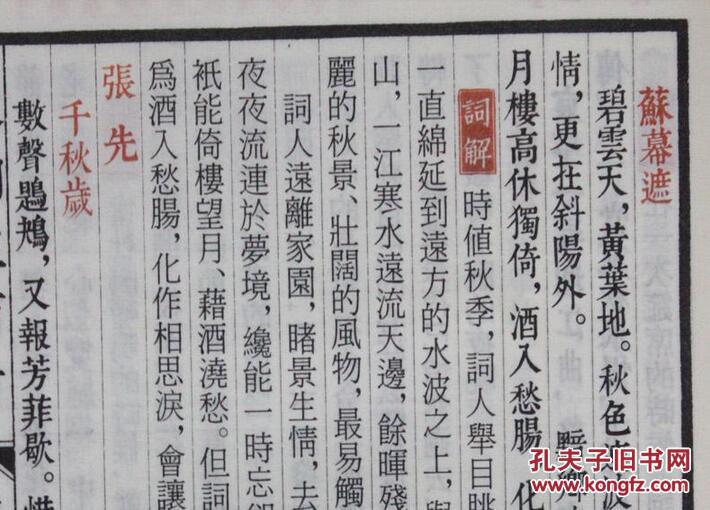 蘇幕遮
碧雲天，黃葉地。秋色
情，更在斜陽外。 黯鄉
月樓高休獨倚，酒入愁腸
詞解 時值秋季，詞人舉目眺
一直綿延到遠方的水波之上，與
山，一江寒水遠流天邊，餘暉殘
麗的秋景、壯闊的風物，最易觸
詞人遠離家園，睹景生情，去
夜夜流連於夢境，纔能一時忘卻
衹能倚樓望月、藉酒澆愁。但詞
爲酒入愁腸，化作相思淚，會讓
張先
千秋歲
數聲鶗鴂，又報芳菲歇。惜
孔夫子旧书网
www.kongfz.com